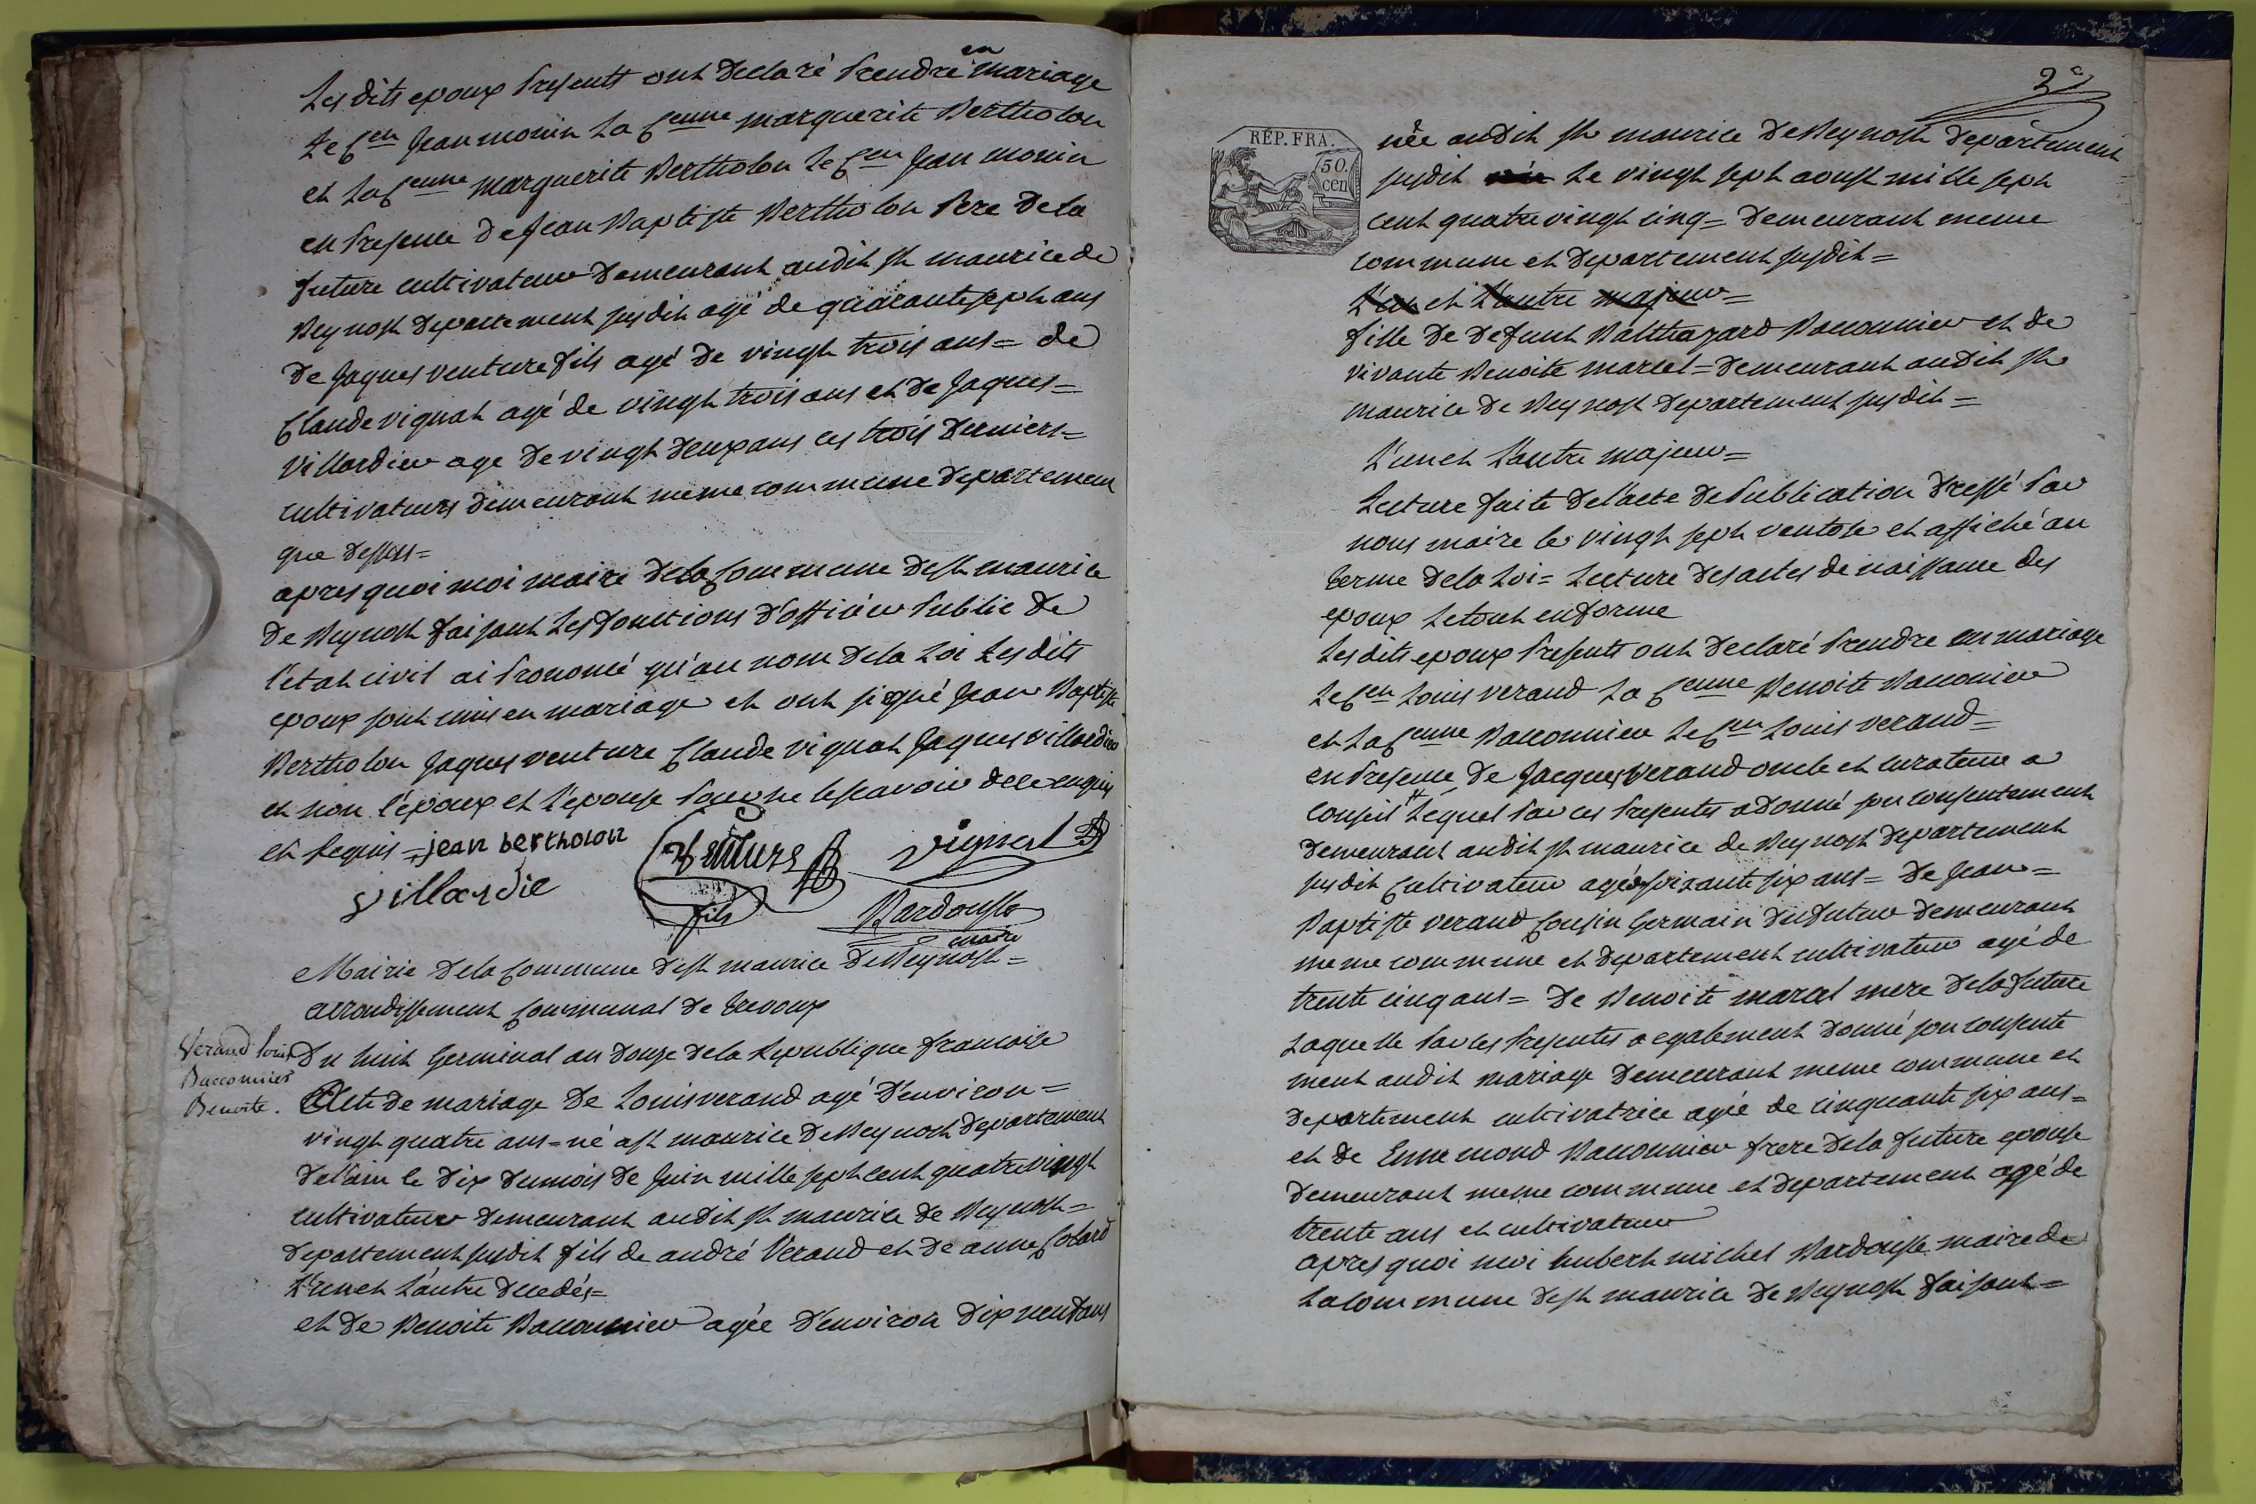 Les dits epoux presents ont declaré prendre en mariage
Le Cen Jean monin La Cenne marguerite Bertholon
et La Cenne marguerite Bertholon le Cen Jean monin
en presence de Jean Baptiste Bertholon pere de la
future cultivateur demeurant audit st maurice de
Beynost departement susdit agé de quarante sept ans
de Jaques venture fils agé de vingt trois ans = de
Claude vignat agé de vingt trois ans et de Jaques =
Villardier age de vingt deux ans ces trois derniers =
cultivateurs demeurant meme commune departement
que dessus =
apres quoi moi maire de la Commune de st maurice
de Beynost faisant les fonctions d'officier public de
l'etat civil ai prononcé qu'au nom de la Loi les dits
epoux sont unis en mariage et ont signé Jean Baptiste
Bertholon Jaques venture Claude vignat Jaques villardier
et non l'époux et l'epouse pour ne le scavoir de ce enquis
et requis = jean bertholon
venture fils
vignat
villardie
Bardousse
maire
Mairie de la Commune de st maurice de Beynost =
arrondissement Communal de Trevoux
Verand Louis
Bacconnier
Benoite.
Du huit Germinal an douze de la Republique francoise
Acte de mariage de Louis verand agé d'environ =
vingt quatre ans = né a st maurice de Beynost departement
de l'ain le dix du mois de Juin mille sept cent quatre vingt
cultivateur demeurant audit st maurice de Beynost =
departement susdit fils de andré Verand et de anne Colard
L'un et L'autre decedés =
et de Benoite Bacconnier agée d'environ dix neuf ans
2e
REP. FRA.
50.
cen
née audit st maurice de Beynost departement
susdit le vingt sept aoust mille sept
cent quatre vingt cinq = demeurant meme
commune et departement susdit =
L'un et L'autre majeur =
fille de defunt Balthazard Bacconnier et de
vivante Benoite marcel = demeurant audit st
maurice de Beynost departement susdit =
L'un et L'autre majeur =
Lecture faite de l'acte de publication dressé par
nous maire le vingt sept ventose et affiché au
terme de la Loi = Lecture des actes de naissance des
epoux Le tout en forme
Les dits epoux presents ont declaré prendre en mariage
Le Cen Louis verand La Cenne Benoite Bacconier
et La Cenne Bacconnier Le Cen Louis verand =
en presence de Jacques verand oncle et curateur a
conseil Lequel par ces presentes a donné son consentement
demeurant audit st maurice de Beynost departement
susdit Cultivateur agé de soixante six ans = de Jean =
Baptiste verand Cousin Germain du futur demeurant
meme commune et departement cultivateur agé de
trente cinq ans = de Benoite marcel mere de la future
Laquelle par ces presentes a egalement donné son consente
ment audit mariage demeurant meme commune et
departement cultivatrice agée de cinquante six ans =
et de Ennemond Bacconnier frere de la future epouse
demeurant meme commune et departement agé de
trente ans et cultivateur
apres quoi moi hubert michel Bardousse maire de
La commune de st maurice de Beynost faisant =